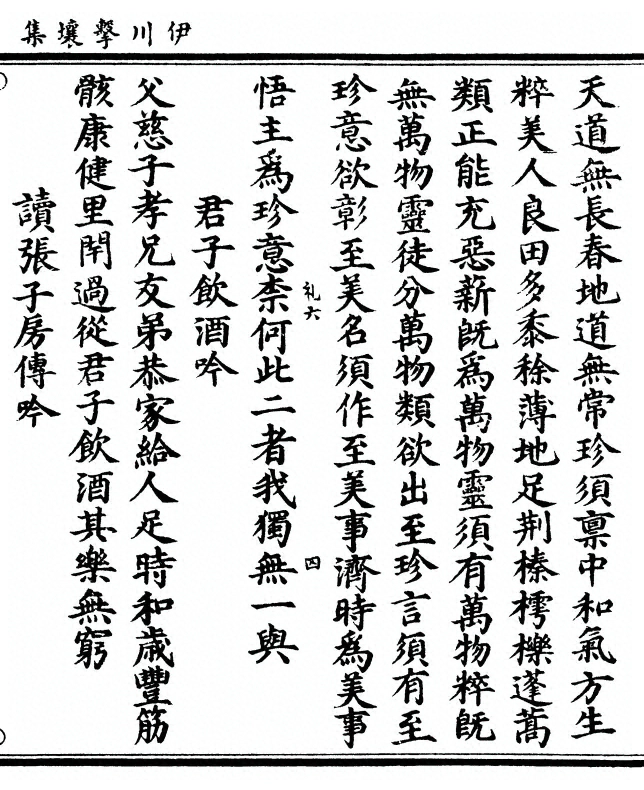 伊川擊壤集
天道無長春地道無常珍須禀中和氣方生
粹美人良田多黍稌薄地足荆榛樗櫟蓬蒿
類正能充惡薪既為萬物靈須有萬物粹既
無萬物靈徒分萬物類欲出至珍言須有至
珍意欲彰至美名須作至美事濟時為美事
悟主爲珍意柰何此二者我獨無一與
礼六
四
君子飲酒吟
父慈子孝兄友弟恭家給人足時和歳豐筋
骸康健里閈過從君子飲酒其樂無窮
讀張子房傳吟